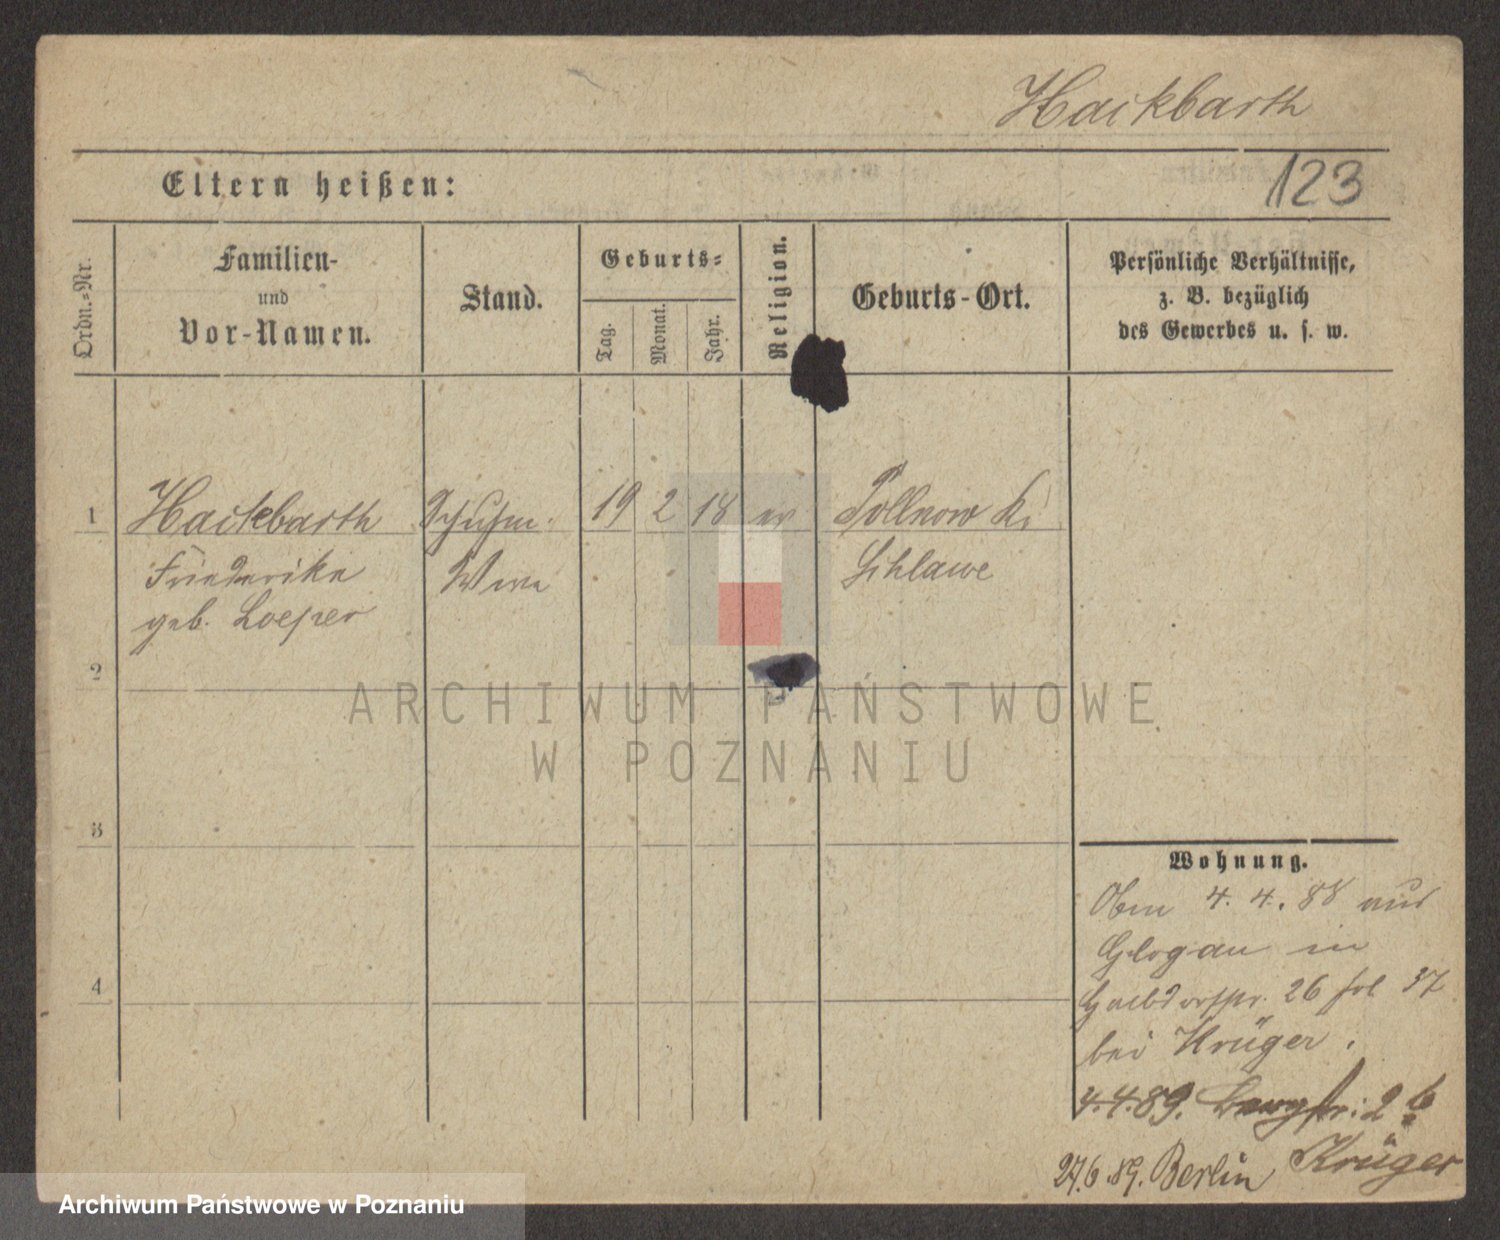 Hackbarth
Eltern heißen:
123
Ordn.=Nr.
Familien-
und
Vor-Namen.
Stand.
Geburts=
Tag.
Monat.
Jahr.
Religion.
Geburts-Ort.
Persönliche Verhältnisse,
z. B. bezüglich
des Gewerbes u. s. w.
1 Hackbarth Schuhm. 19 2 18 ev Pollnow Kr
Friederike Wwe Schlawe
geb. Loeper
2
ARCHIWUM PAŃSTWOWE
W POZNANIU
3
4
Wohnung.
4. 4. 88 aus
Glogau in
26 37
bei Krüger.
4.4.89. 26
Krüger
27.6.89. Berlin
Archiwum Państwowe w Poznaniu